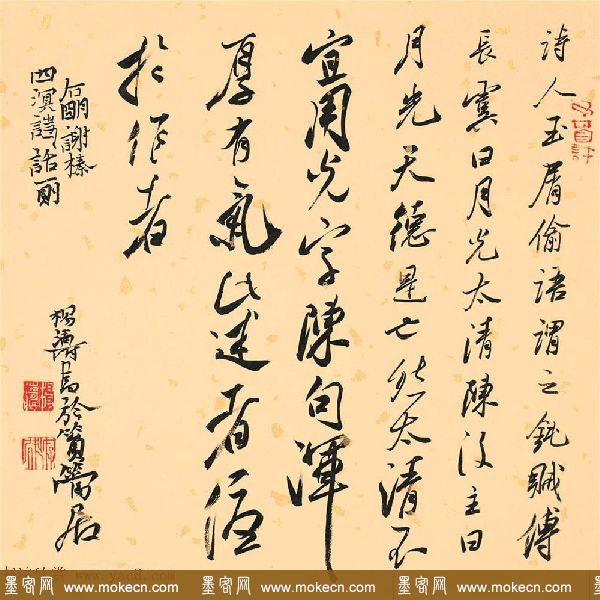 詩人玉屑偷語謂之鈍賊傅
長虞日月光太清陳後主日
月光天德是也然太清不
宜用光字陳句渾
厚有氣此述者優
於作者
右明謝榛
四溟詩話一則
楊濤書於篔簹居
墨客网 墨客网 墨客网
www.mokecn.com www.mokecn.com www.mokecn.com